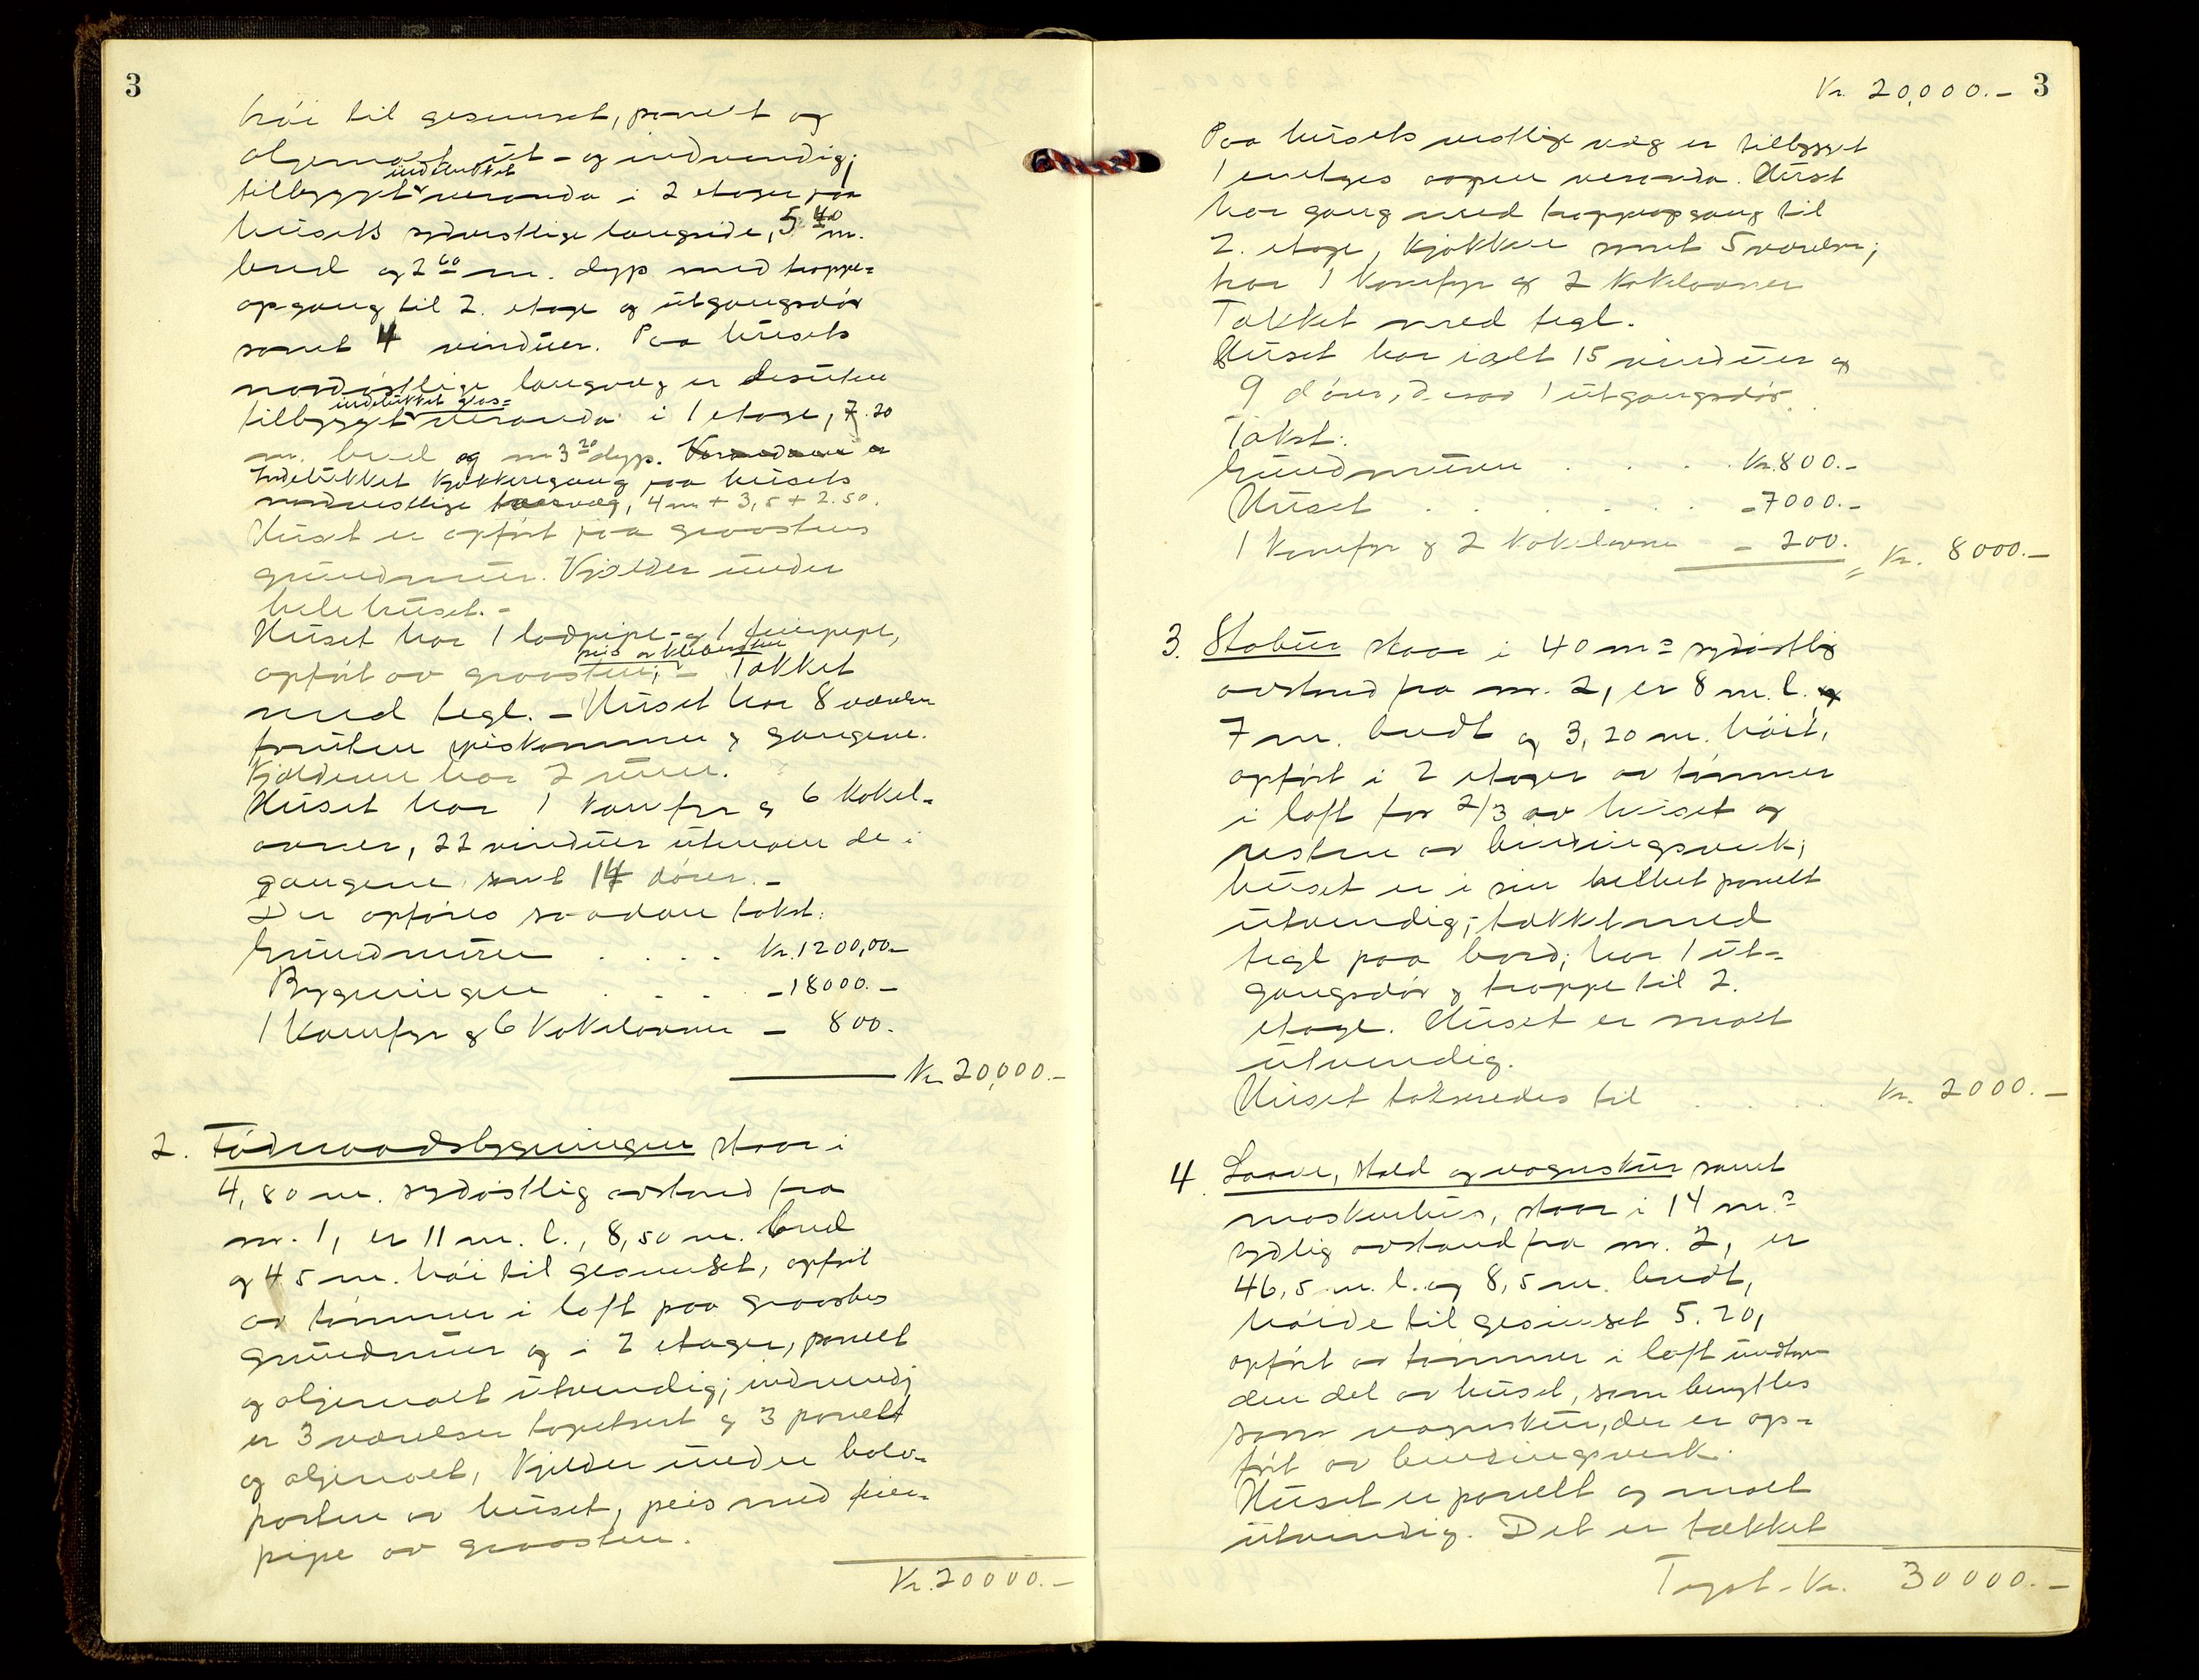 3
høi til gesimset, panelt og
oljemalt ut- og indvendig;
indelukket
tilbygget veranda i 2 etager paa
husets sydvestlige langside, 5.40 m.
bred og 2.60 m. dyp med trappe-
opgang til 2. etage og utgangsdør
samt 4 vinduer. Paa husets
nordøstlige langvæg er desuten
indelukket glas-
tilbygget veranda i 1 etage, 7.20
m. bred og m 3.20 dyp. Verandaen er
Indelukket kjøkkengang paa husets
nordvestlige tvervæg, 4 m + 3,5 + 2.50.
Huset er opført paa graastens
grundmur. Kjelder under
hele huset.-
Huset har 1 ladpipe- og 1 feierpipe,
peis av klebersten
opført av graasten; - Takket
med tegl. - Huset har 8 værelser
foruten spiskammer og gangene.
Kjelderen har 2 rum.
Huset har 1 komfyr og 6 kakel-
ovner, 22 vinduer utenom de i
gangene samt 14 dører.-
Der opføres saadan takst:
Grundmuren . . . . Kr. 1200,00.-
Bygningen . . . -18000.-
1 Komfyr og 6 Kakelovner - 800.
Kr 20,000.-
2. Födiraadsbygningen staar i
4,80 m. sydøstlig avstand fra
nr. 1, er 11 m. l., 8,50 m. bred
og 4 5 m. høi til gesimset, opført
av tømmer i laft paa graastens
grundmur og i 2 etager, panelt
og oljemalt utvendig; indvendig
er 3 værelser tapetsert og 3 panelt
og oljemalt, Kjelder under halv-
parten av huset, peis med feier-
pipe av graasten.
Kr. 20000.-
Kr. 20,000.- 3
Paa husets vestlige væg er tilbygget
1 enetges aapen veranda. Huset
har gang med trappeopgang til
2. etage, kjøkken samt 5 værelser;
har 1 komfyr og 2 kakelovner
Takket med tegl.
Huset har ialt 15 vinduer og
9 dører, derav 1 utgangsdør.
Takst:
Grundmuren . . . . Kr. 800.-
Huset . . . . . . -7000.-
1 Komfyr og 2 Kakelovne - - 200. = Kr. 8000.-
3. Stabur staar i 40 m.s sydøstlig
avstand fra nr. 2, er 8 m. l. og
7 m. bredt og 3,20 m. høit,
opført i 2 etager av tømmer
i laft for 2/3 av huset og
resten av bindingsverk;
huset er i sin helhet panelt
utvendig; takket med
tegl paa bord; har 1 ut-
gangsdør og trappe til 2.
etage. Huset er malt
utvendig.
Huset takseredes til . . . . Kr. 2000.-
4. Laave, stald og vognskur samt
maskinhus, staar i 14 m.s
sydlig avstand fra nr. 2, er
46,5 m. l. og 8,5 m. bredt,
høide til gesimset 5.20,
opført av tømmer i laft undtagen
den del av huset, som benyttes
som vognskur, der er op-
ført av bindingsverk.
Huset er panelt og malt
utvendig. Det er tækket
Tapst. Kr. 30000.-